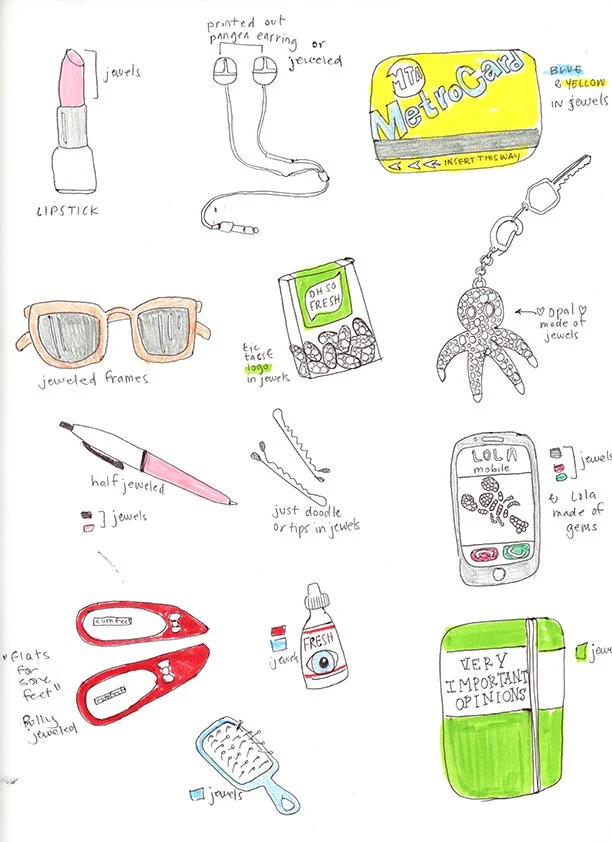 printed out
pangea earring or
jeweled
jewels
LIPSTICK
MTA
MetroCard
INSERT THIS WAY
BLUE
& YELLOW
in jewels
jeweled frames
OH SO
FRESH
logo
in jewels
opal
made of
jewels
half jeweled
jewels
just doodle
or tips in jewels
LOLA
mobile
jewels
Lola
made of
gems
"flats
for
sore
feet"
Fully
jeweled
FRESH
jewels
jewels
VERY
IMPORTANT
OPINIONS